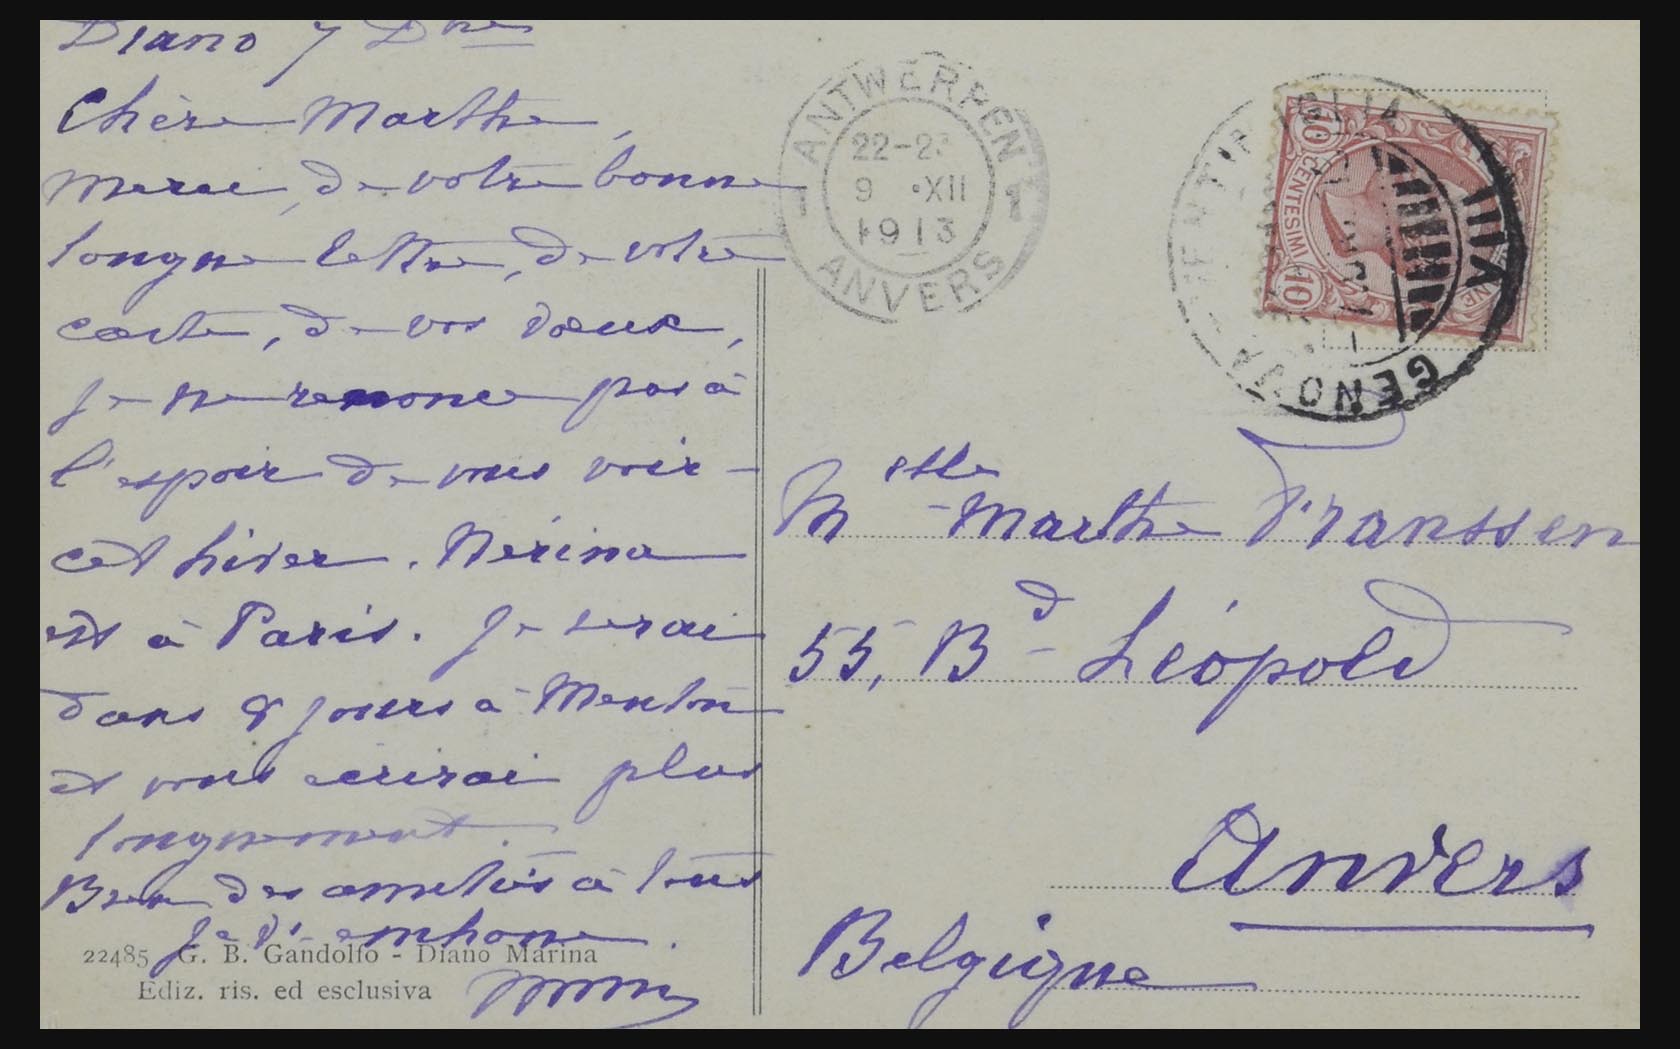 Diano 7 Dbre
Chère Marthe,
Merci, de votre bonne
longue lettre, de votre
carte, de vos vœux,
je ne renonce pas à
l'espoir de vous voir
cet hiver. Nérina
est à Paris. Je serai
dans 8 jours à Menton
et vous écrirai plus
longuement.
Bien des amitiés à tous
Je
22485 G. B. Gandolfo - Diano Marina
Ediz. ris. ed esclusiva
ANTWERPEN
22-23
9 •XII
1913
1 1
ANVERS
VENTIMIGLIA
GENOVA
XII
10 CENTESIMI 10
Melle Marthe Franssen
55, Bd Léopold
Anvers
Belgique